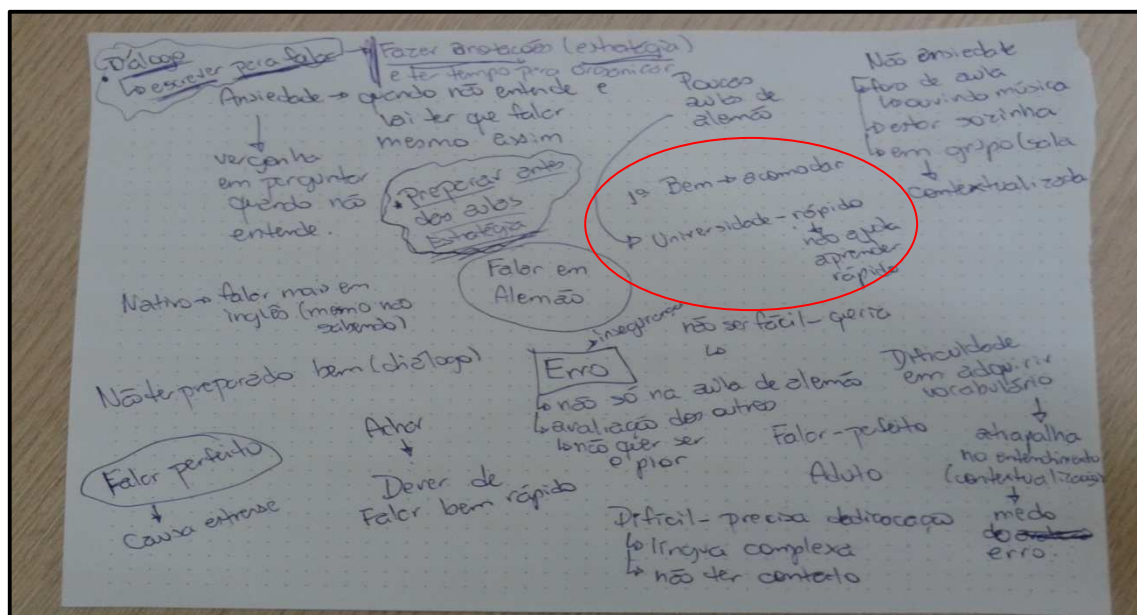 Diálogo
↳ escrever para falar → Fazer anotações (estratégia)
e ter tempo para organizar
Ansiedade → quando não entende e
vai ter que falar
mesmo assim
vergonha
em perguntar
quando não
entende.
• Preparar antes
das aulas
Estratégia
Poucas
aulas de
alemão
Não ansiedade
fora de aula
↳ ouvindo música
↳ estar sozinha
↳ em grupo (sala
contextualizada
1ª Bem → acomodar
Universidade - rápido
não ajuda
aprender
rápido
Falar em
Alemão
Nativo → falar mais em
inglês (mesmo não
sabendo)
Não ter preparado bem (diálogo)
insegurança
Erro
↳ não só na aula de alemão
↳ avaliação dos outros
↳ não quer ser
o pior
não ser fácil - queria
↳
Dificuldade
em adquirir
vocabulário
atrapalha
no entendimento
medo
do
erro.
Falar perfeito
Causa estresse
Achar
Dever de
Falar bem rápido
Falar - pefeito
Aduto
Difícil - precisa
↳ língua complexa
↳ não ter contato